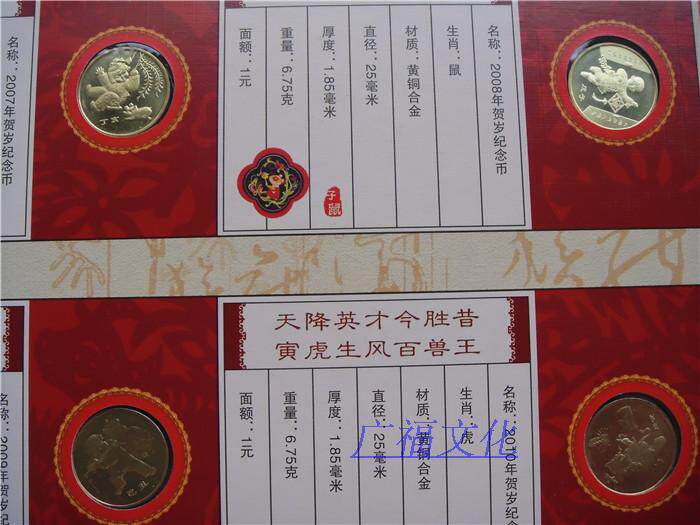 名称：2007年贺岁纪念币
丁亥
名称：2008年贺岁纪念币
生肖：鼠
材质：黄铜合金
直径：25毫米
厚度：1.85毫米
重量：6.75克
面额：1元
子鼠
戊子
名称：2009年贺岁纪念币
己丑
天降英才今胜昔
寅虎生风百兽王
名称：2010年贺岁纪念币
生肖：虎
材质：黄铜合金
直径：25毫米
厚度：1.85毫米
重量：6.75克
面额：1元
广福文化